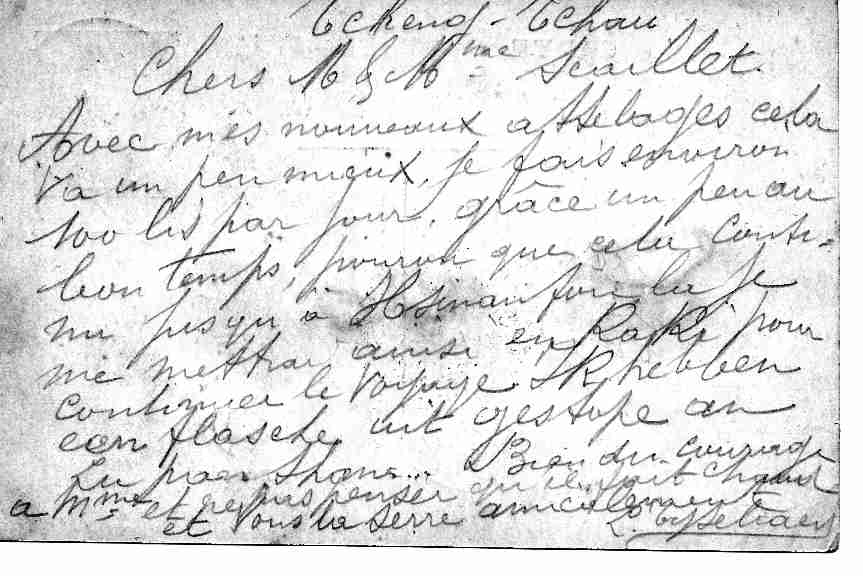 Tcheng-Tchau
Chers M & Mme Scaillet.
Avec mes nouveaux attelages cela
va un peu mieux, je fais environ
100 lis par jour, grâce un peu au
bon temps, pourvu que cela conti-
nu jusqu'à Hsinanfou la je
me mettrai ainsi en Kaki pour
continuer le voyage. Ik hebben
een flasche uit gestope an
Lu Bien du courage
a Mme et ne pas penser qu'il fait chaud
et vous la serre amicalement